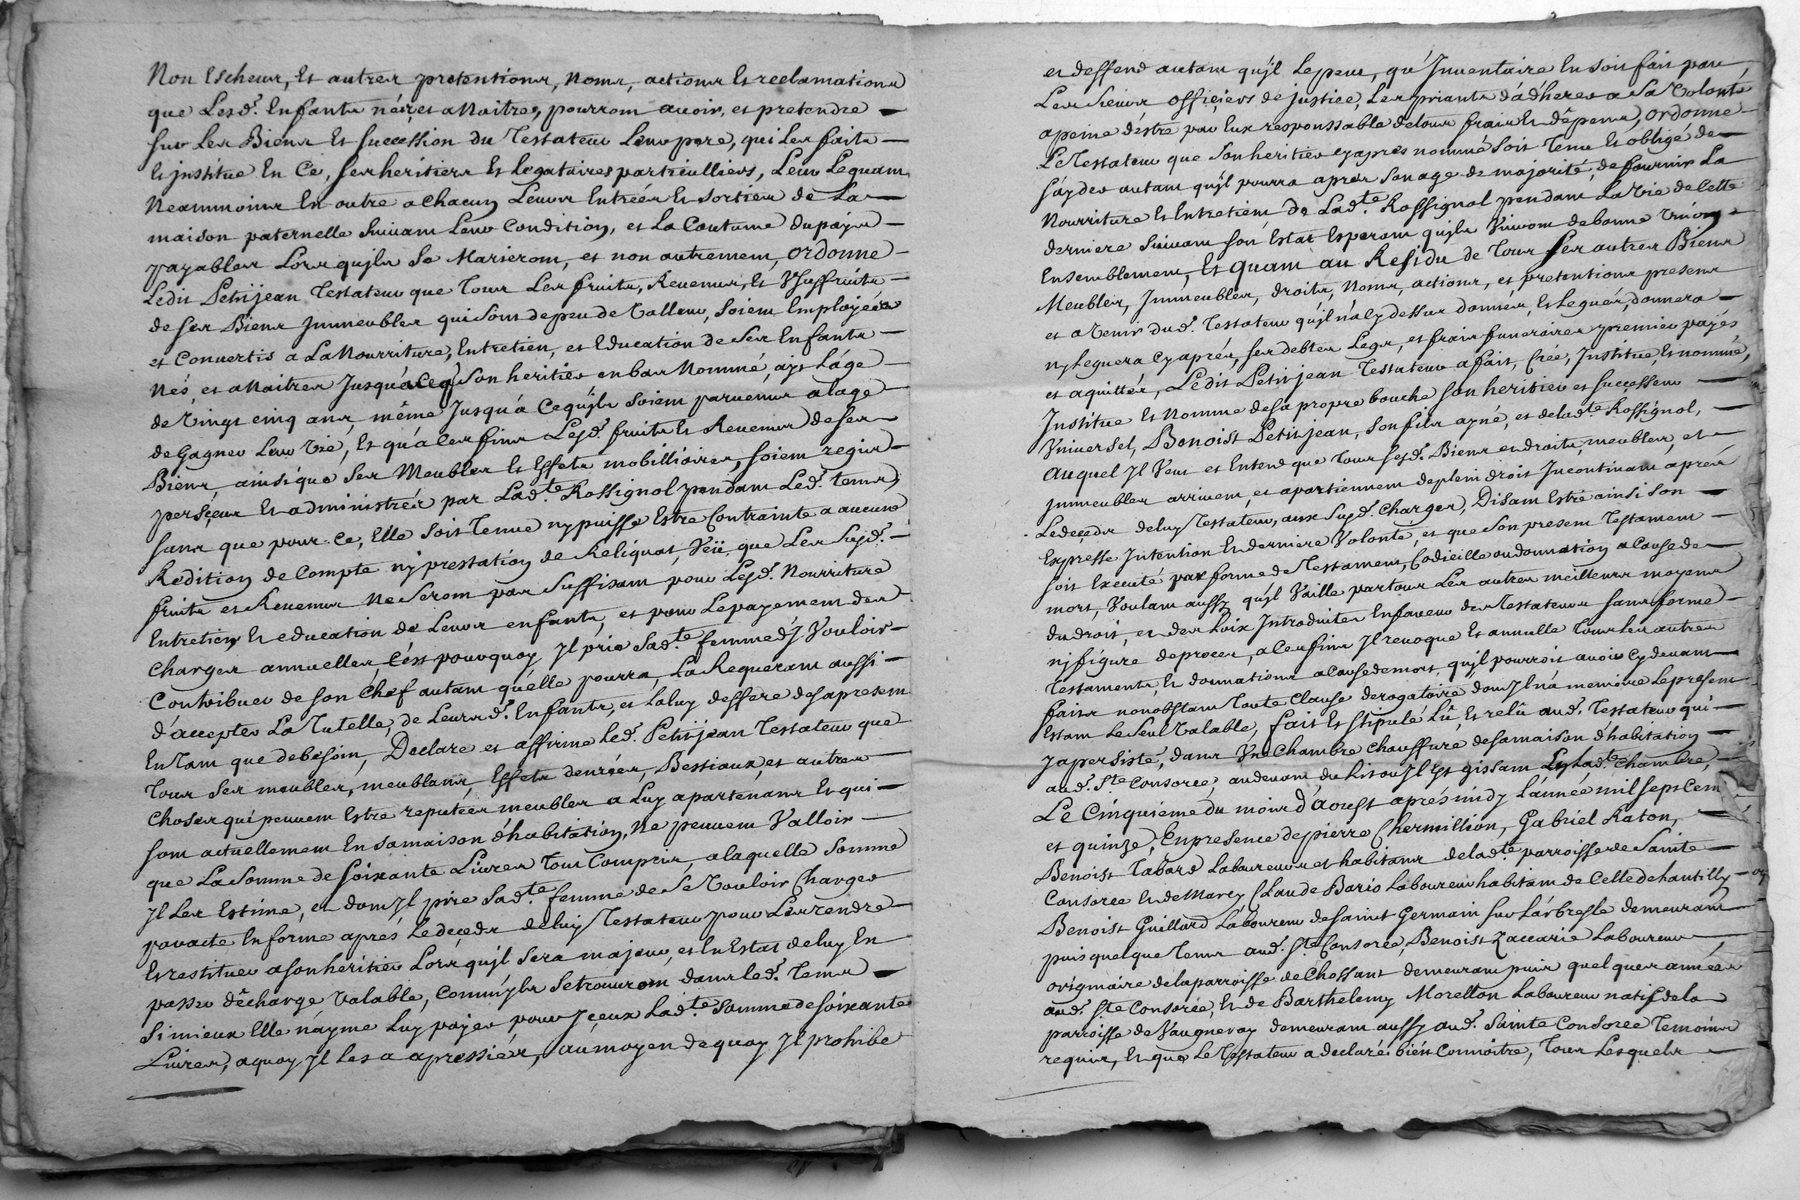 Non Escheus, Et autres pretentions, Noms, actions Et reclamations
que Lesd.s Enfants néz, et a Naitre, pourront avoir, et pretendre
sur Les Biens Et succession du Testateur Leur pere, qui Les faits
Et jnstitue En Ce, ses heritiers Et Legataires particulliers, Leur Leguant
Neammoins En outre a Chacun Leurs Entrées Et sorties de La
maison paternelle suivant Leur Condition, et La Coutume du pays
payables Lors qu'jls se Marieront, et non autrement, ordonne
Ledit Petitjean Testateur que Tous Les fruits, Revenus, Et Vsuffruits
de ses Biens Jmmeubles qui sont de peu de Valleur, soient Employées
et Convertis a La Nourriture, Entretien, et Education de ses Enfants
Nés, et a Naitre Jusqu'a ce q. son heritier en bas Nommé, ayt L'áge
de Vingt cinq ans, même Jusqu'á Ce qu'jls soient parvenus a l'age
de Gagner Leur Vie, Et qu'á Ces fins Lesd.s fruits Et Revenus de ses
Biens, ainsi que ses Meubles Et Effets mobilliaires, soient regis
perseçus Et administrés par Lad.te Rossignol pendant Led.t tems,
sans que pour Ce, Elle soit Tenue ny puisse Estre Contrainte a aucune
Redition de Compte ny prestation de Reliquat, Vëü que Les susd.s
fruits et Revenus Ne seront pas suffisant pour Lesd.s Nourriture
Entretien Et education de Leurs enfants, et pour Le payement des
Charges annuelles C'est pourquoy Jl prie sad.te femme d'y Vouloir
Contribuer de son Chef autant qu'elle pourra, La Requerant aussi
d'accepter La Tutelle, de Leursd.s Enfants, et La luy deffere des a present
En Tant que de besoin, Declare et affirme Led.t Petitjean Testateur que
Tous ses meubles, meublans, Effets denrées, Bestiaux, et autres
Choses qui peuvent Estre reputées meubles a Luy apartenans Et qui
sont actuellement En sa maison d'habitation, Ne peuvent Valloir
que La somme de soixante Livres Tout Compris, a laquelle somme
Jl Les Estime, et dont Jl prie sad.te femme de se Vouloir Charger
par acte En forme aprés Le deçeds de luy Testateur pour Les rendre
Et restituer a son heritier Lors qu'jl sera majeur, et En Estat de luy En
passer dêcharge Valable, Comm'jls se trouveront dans led.t Tems
si mieux Elle n'ayme Luy payer pour Jçeux Lad.te somme de soixante
Livres, a quoy Jl Les a apressiés, au moyen de quoy Jl prohibe
et deffend autant qu'jl Le peut, qu'Jnventaire En soit fait par
Les sieurs officiers de justice, Les priants d'adherer a sa Volonté
a peine d'éstre par Eux responssable de tous frais Et dêpens, ordonne
Le Testateur que son heritier cy apres nommé soit Tenu Et obligé de
s'ayder autant qu'jl pourra apres son age de majorité, de fournir La
Nourriture Et Entretiens de Lad.te Rossignol pendant La Vie de Cette
derniere suivant son Estat Esperant qu'jls Vivront de bonne Vnion
Ensemblement, Et Quant au Residu de Tous ses autres Biens
Meubles, Jmmeubles, droits, Noms, actions, et pretentions presens
et a Venir dud.t Testateur qu'jl n'a Cy dessus donnés, Et Legués, donnera
ny Leguera Cy aprés, ses debtes Legs, et frais funeraires premier payés
et aquittés, Ledit Petitjean Testateur a fait, Crée, Jnstitue Et nommé,
Jnstitue Et Nomme de sa propre bouche son heritier et successeur
Vniversel, Benoist Petitjean, son fils ayné, et de lad.te Rossignol,
Auquel Jl Veut et Entend que Tous sesd.s Biens et droits, meubles, et
jmmeubles arrivent, et apartiennent de plein droit Jncontinant aprés
Le deçeds de luy Testateur, aux susd.s Charges, Disant Estre ainsi son
Expresse Jntention Et derniere Volonté, et que son present Testament
soit Executé par forme de Testament, Codicille ou donnation a Cause de
mort, Voulant aussy qu'jl Vaille par tous Les autres meilleurs moyens
du droit, et des Loix Jntroduites En faveur des Testateurs sans forme
ni figure de proces, a Ces fins Jl revoque Et annulle Tous les autres
Testaments, Et donnations a Cause de mort qu'jl pourroit avoir cy devant
faits nonobstant Toute Clause derogatoire dont Jl n'a memoire Le present
Estant Le seul Valable, fait Et stipulé Lû, Et relû aud.t Testateur qui
y a persisté, dans Vne Chambre Chauffure de sa maison d'habitation
aud.t S.te Consorce, au devant du Lit ou Jl Est gissant En Lad.te Chambre,
Le Cinquieme du mois d'Aoust aprés midy L'année mil sept Cent
et quinze, En presence de pierre Chermillion, Gabriel Raton,
Benoist Tabard Laboureurs et habitans de lad.te parroisse de Sainte
Consorce Et de Marcy Claude Bario Laboureur habitant de Celle de hantilly
Benoist Guillard Laboureur de saint Germain sur L'árbresle demeurant
puis quelque Tems aud.t S.te Consorce, Benoist Zaccarie Laboureur
originaire de la parroisse de Chossant demeurant puis quelques années
aud.t S.te Consorce, Et de Barthelemy Morellon Laboureur natif de la
parroisse de Vaugneray demeurant aussy aud.t Sainte Consorce Temoins
requis, Et que Le Testateur a declaré bien Connoitre, Tous Lesquels